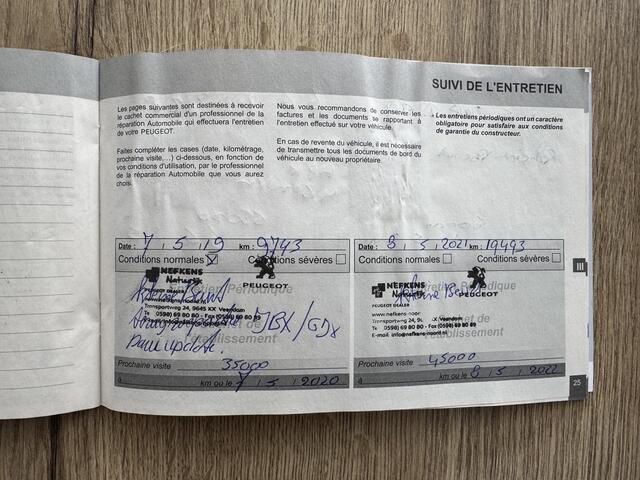 SUIVI DE L'ENTRETIEN
Les pages suivantes sont destinées à recevoir
le cachet commercial d'un professionnel de la
réparation Automobile qui effectuera l'entretien
de votre PEUGEOT.
Faites compléter les cases (date, kilométrage,
prochaine visite,...) ci-dessous, en fonction de
vos conditions d'utilisation, par le professionnel
de la réparation Automobile que vous aurez
choisi.
Nous vous recommandons de conserver les
factures et les documents se rapportant à
l'entretien effectué sur votre véhicule.
En cas de revente du véhicule, il est nécessaire
de transmettre tous les documents de bord du
véhicule au nouveau propriétaire.
• Les entretiens périodiques ont un caractère
obligatoire pour satisfaire aux conditions
de garantie du constructeur.
Date : 7 , 5 , 19 km : 9743
Conditions normales Conditions sévères
NEFKENS
PEUGEOT
Périodique
PEUGEOT DEALER
Transportweg 24, 9645 KX Veendam
Te (0598) 69 80 80 - Fax (0598) 69 80 89
update.
Prochaine visite 35000
à km ou le 7 , 5 , 2020
Date : 8 , 5 , 2021 km : 19493
Conditions normales Conditions sévères
NEFKENS
PEUGEOT
Périodique
PEUGEOT DEALER
Transportweg 24, Veendam
Te (0598) 69 80 80 - Fax (0598) 69 80 89
E info@nefkens-noord.nl
l'établissement
Prochaine visite 45000
à km ou le 8 , 5 , 2022
III
25